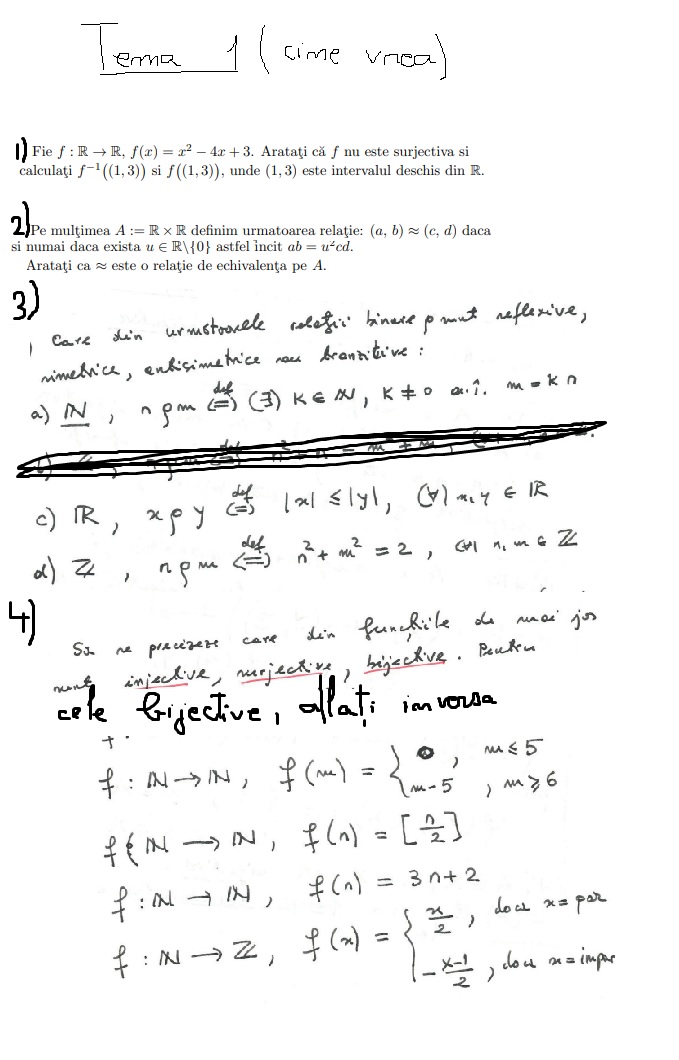 Tema 1 (cine vrea)
1) Fie f : ℝ → ℝ, f(x) = x² − 4x + 3. Arataţi că f nu este surjectiva si
calculaţi f⁻¹((1, 3)) si f((1, 3)), unde (1, 3) este intervalul deschis din ℝ.
2) Pe mulţimea A := ℝ × ℝ definim urmatoarea relaţie: (a, b) ≈ (c, d) daca
si numai daca exista u ∈ ℝ\{0} astfel încit ab = u²cd.
Arataţi ca ≈ este o relaţie de echivalenţa pe A.
3)
Care din urmatoarele relații binare sunt reflexive,
simetrice, antisimetrice sau tranzitive :
a) ℕ , n ρ m ⟺(def) (∃) k ∈ ℕ, k ≠ 0 a.î. m = k n
c) ℝ , x ρ y ⟺(def) |x| ≤ |y|, (∀) x, y ∈ ℝ
d) ℤ , n ρ m ⟺(def) n² + m² = 2 , (∀) n, m ∈ ℤ
4)
Să se precizeze care din funcțiile de mai jos
sunt injective, surjective, bijective. Pentru
cele bijective, aflați inversa
f : ℕ → ℕ, f(m) = { 0 , m ≤ 5
m-5 , m ≥ 6
f : ℕ → ℕ, f(n) = [n/2]
f : ℕ → ℕ, f(n) = 3n+2
f : ℕ → ℤ, f(x) = { x/2 , dacă x = par
-(x-1)/2 , dacă x = impar